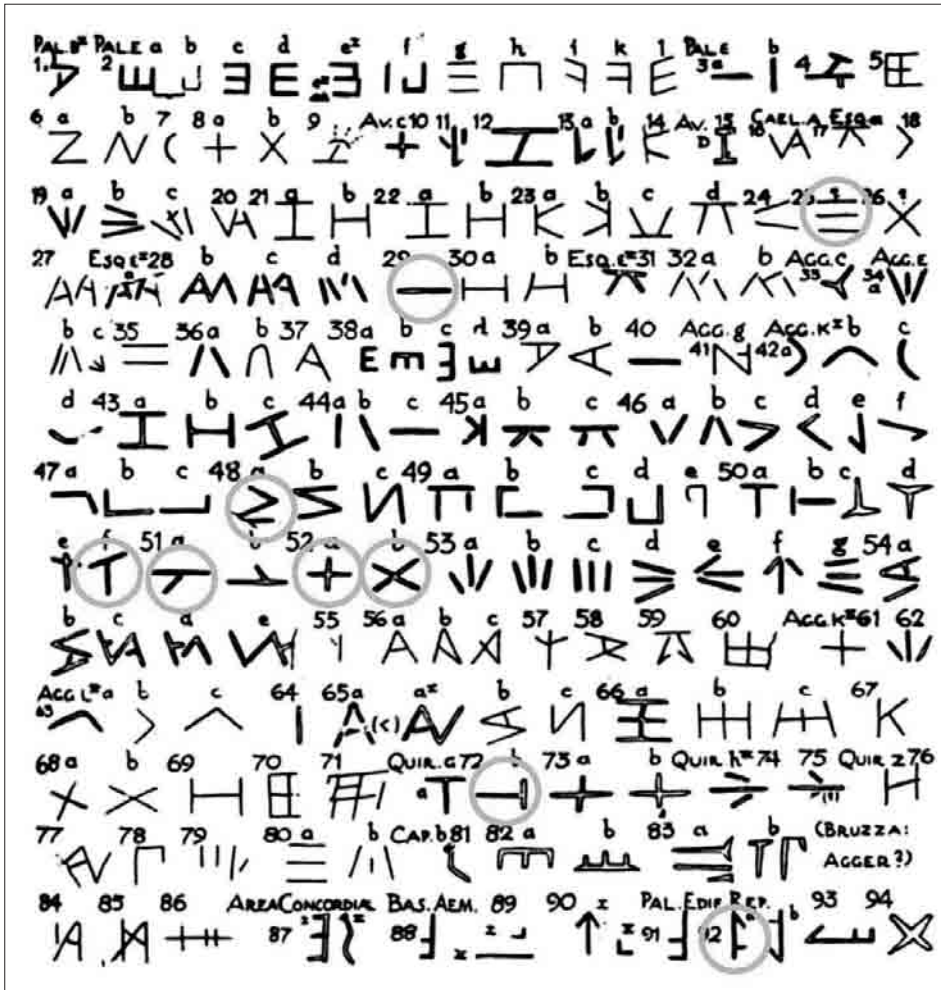 PAL.B* PAL.E a b c d e* f g h i k l PAL E b
1. 2 3a 4 5
6 a b 7 8 a b 9 AV.C 10 11 12 13 a b 14 AV. D 15 CAEL.A ESQ.a
16 17 18
19 a b c 20 21 a b 22 a b 23 a b c d 24 25 26
27 ESQ.E* 28 b c d 29 30 a b ESQ.E* 31 32 a b AGG.C AGG.E
33 34 a
b c 35 36 a b 37 38 a b c d 39 a b 40 AGG.g AGG.K* b c
41 42 a
d 43 a b c 44 a b c 45 a b c 46 a b c d e f
47 a b c 48 a b c 49 a b c d e 50 a b c d
e f 51 a b 52 a b 53 a b c d e f g 54 a
b c d e 55 56 a b c 57 58 59 60 AGG.K* 61 62
AGG L* a b c 64 65 a a* b c 66 a b c 67
63 (<)
68 a b 69 70 71 QUIR.G 72 b 73 a b QUIR h* 74 75 QUIR Z 76
a (1)
77 78 79 80 a b CAP.b 81 82 a b 83 a b (BRUZZA:
AGGER?)
84 85 86 AREA CONCORDIAE BAS.AEM. 89 90 PAL.EDIF.REP. 93 94
87 88 91 92 a b